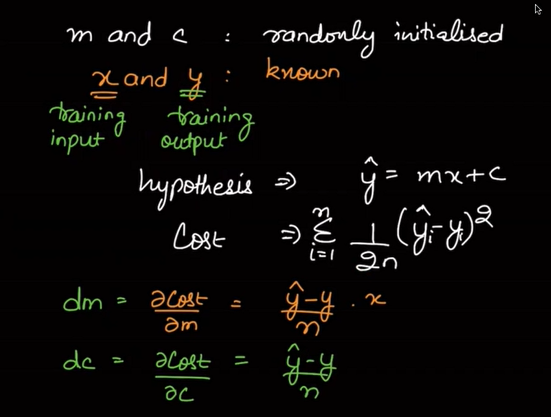 m and c : randonly initialised
x and y : known
training input training output
hypothesis ⇒ ŷ = mx + c
Cost ⇒ Σ_{i=1}^{n} 1/2n (ŷᵢ - yᵢ)²
dm = ∂Cost/∂m = ŷ - y/n . x
dc = ∂Cost/∂c = ŷ - y/n